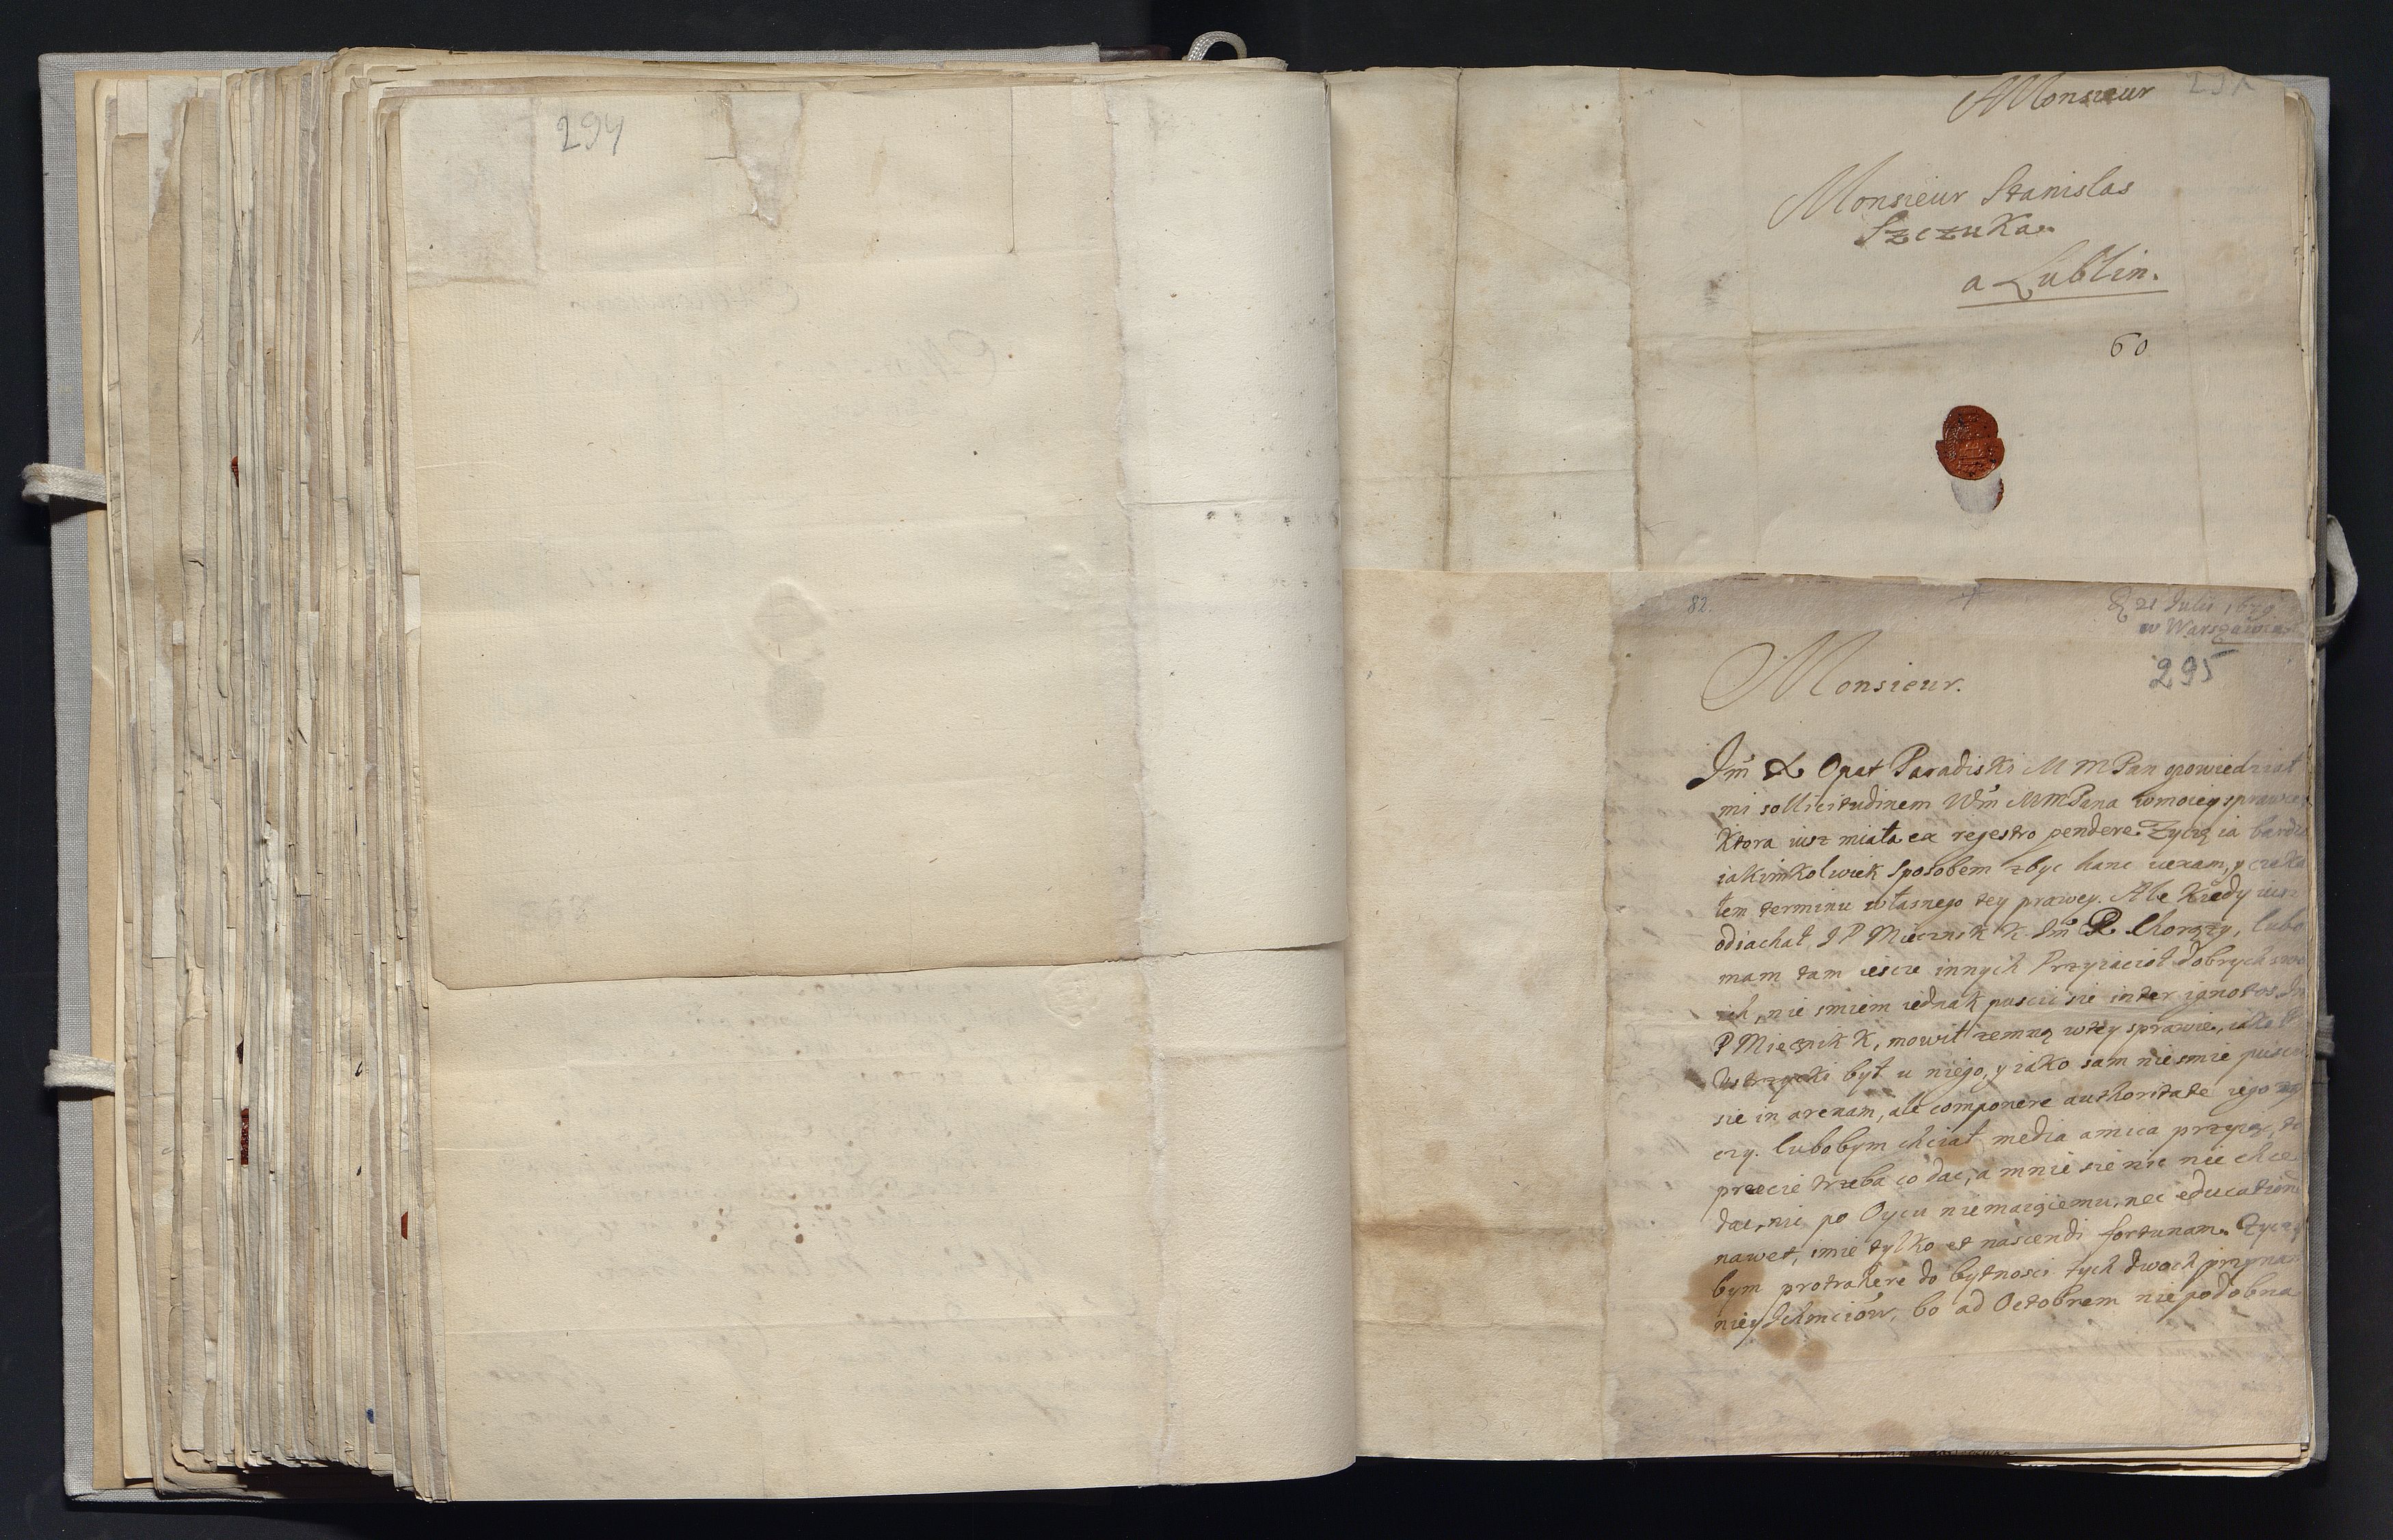 294
A Monsieur
Monsieur Stanislas
Szczuka
a Lublin.
60
82.
21 Julii 1679
w Warszawie
295
Monsieur.
Jm X Opat Paradiski M M Pan opowiedział
mi sollicitudinem Wm MMPana w moiey sprawie,
Ktora iusz miała ex regestro pendere. Zyczę ia bardzo
iakimkolwiek sposobem zbyc hanc vexam, y czeka
łem terminu własnego tey prawey. Ale Kiedy iusz
odiachał J P Miecznik K. Jm P. Chorązy, lubo
mam tam iescze innych Przyiacioł dobrych swo
ich, nie smiem iednak puscic sie inter ignotos. Jm
P Miecznik K, mowił zemną w tey sprawie, iako P
Ustrzycki był u niego, y iako sam niesmie puscic
sie in arenam, ale componere authoritate iego zy
czy. lubobym chciał media amica przyiąć, to
przecie trzeba co dac, a mnie sie nic nie chce
dac, nic po Oycu niemaiącemu, nec educationem
nawet, imie tylko et nascendi fortunam. Zyczył
bym protrahere do bytnosci tych dwoch przynay
niey Ichmciow, bo ad Octobrem niepodobna